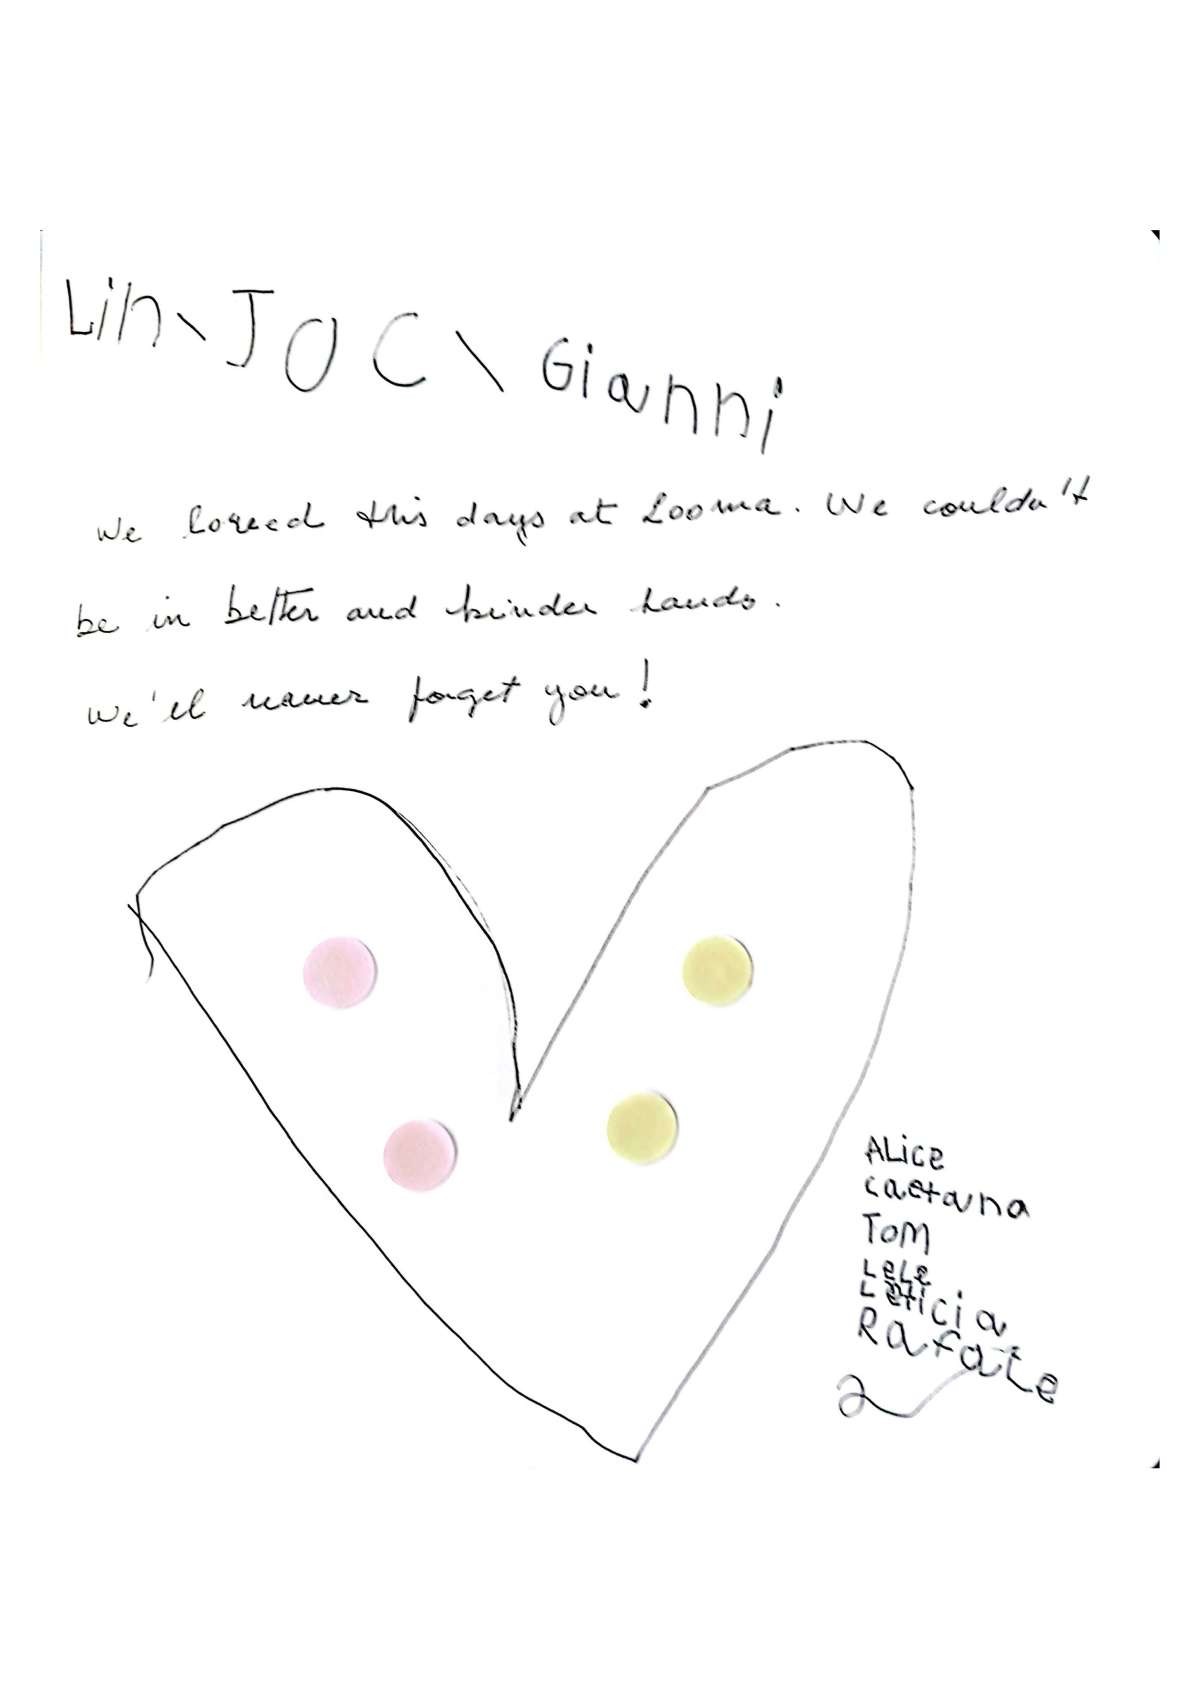 Lin \ JOC \ Gianni
We loved this days at Looma. We couldn't
be in better and kinder hands.
We'll never forget you!
ALice
caetana
Tom
LeLe
Leticia
Rafa